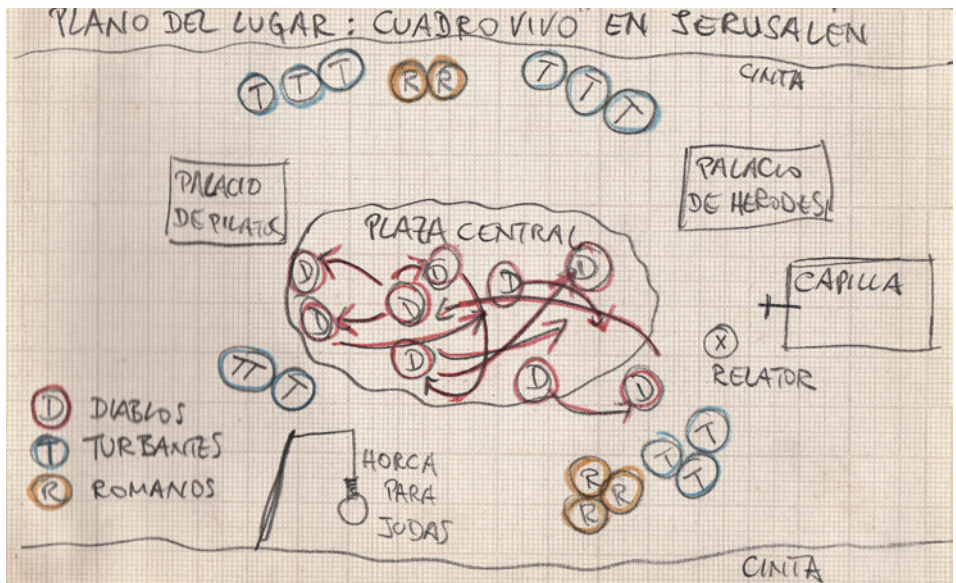 PLANO DEL LUGAR: "CUADRO VIVO" EN JERUSALÉN
T T T R R T T T
CINTA
PALACIO
DE PILATOS
PALACIO
DE HERODES
PLAZA CENTRAL
CAPILLA
D D D D
D D
D D D
X
RELATOR
TT T
D DIABLOS
T TURBANTES
R ROMANOS
HORCA
PARA
JUDAS
T
T T
R R
R
CINTA